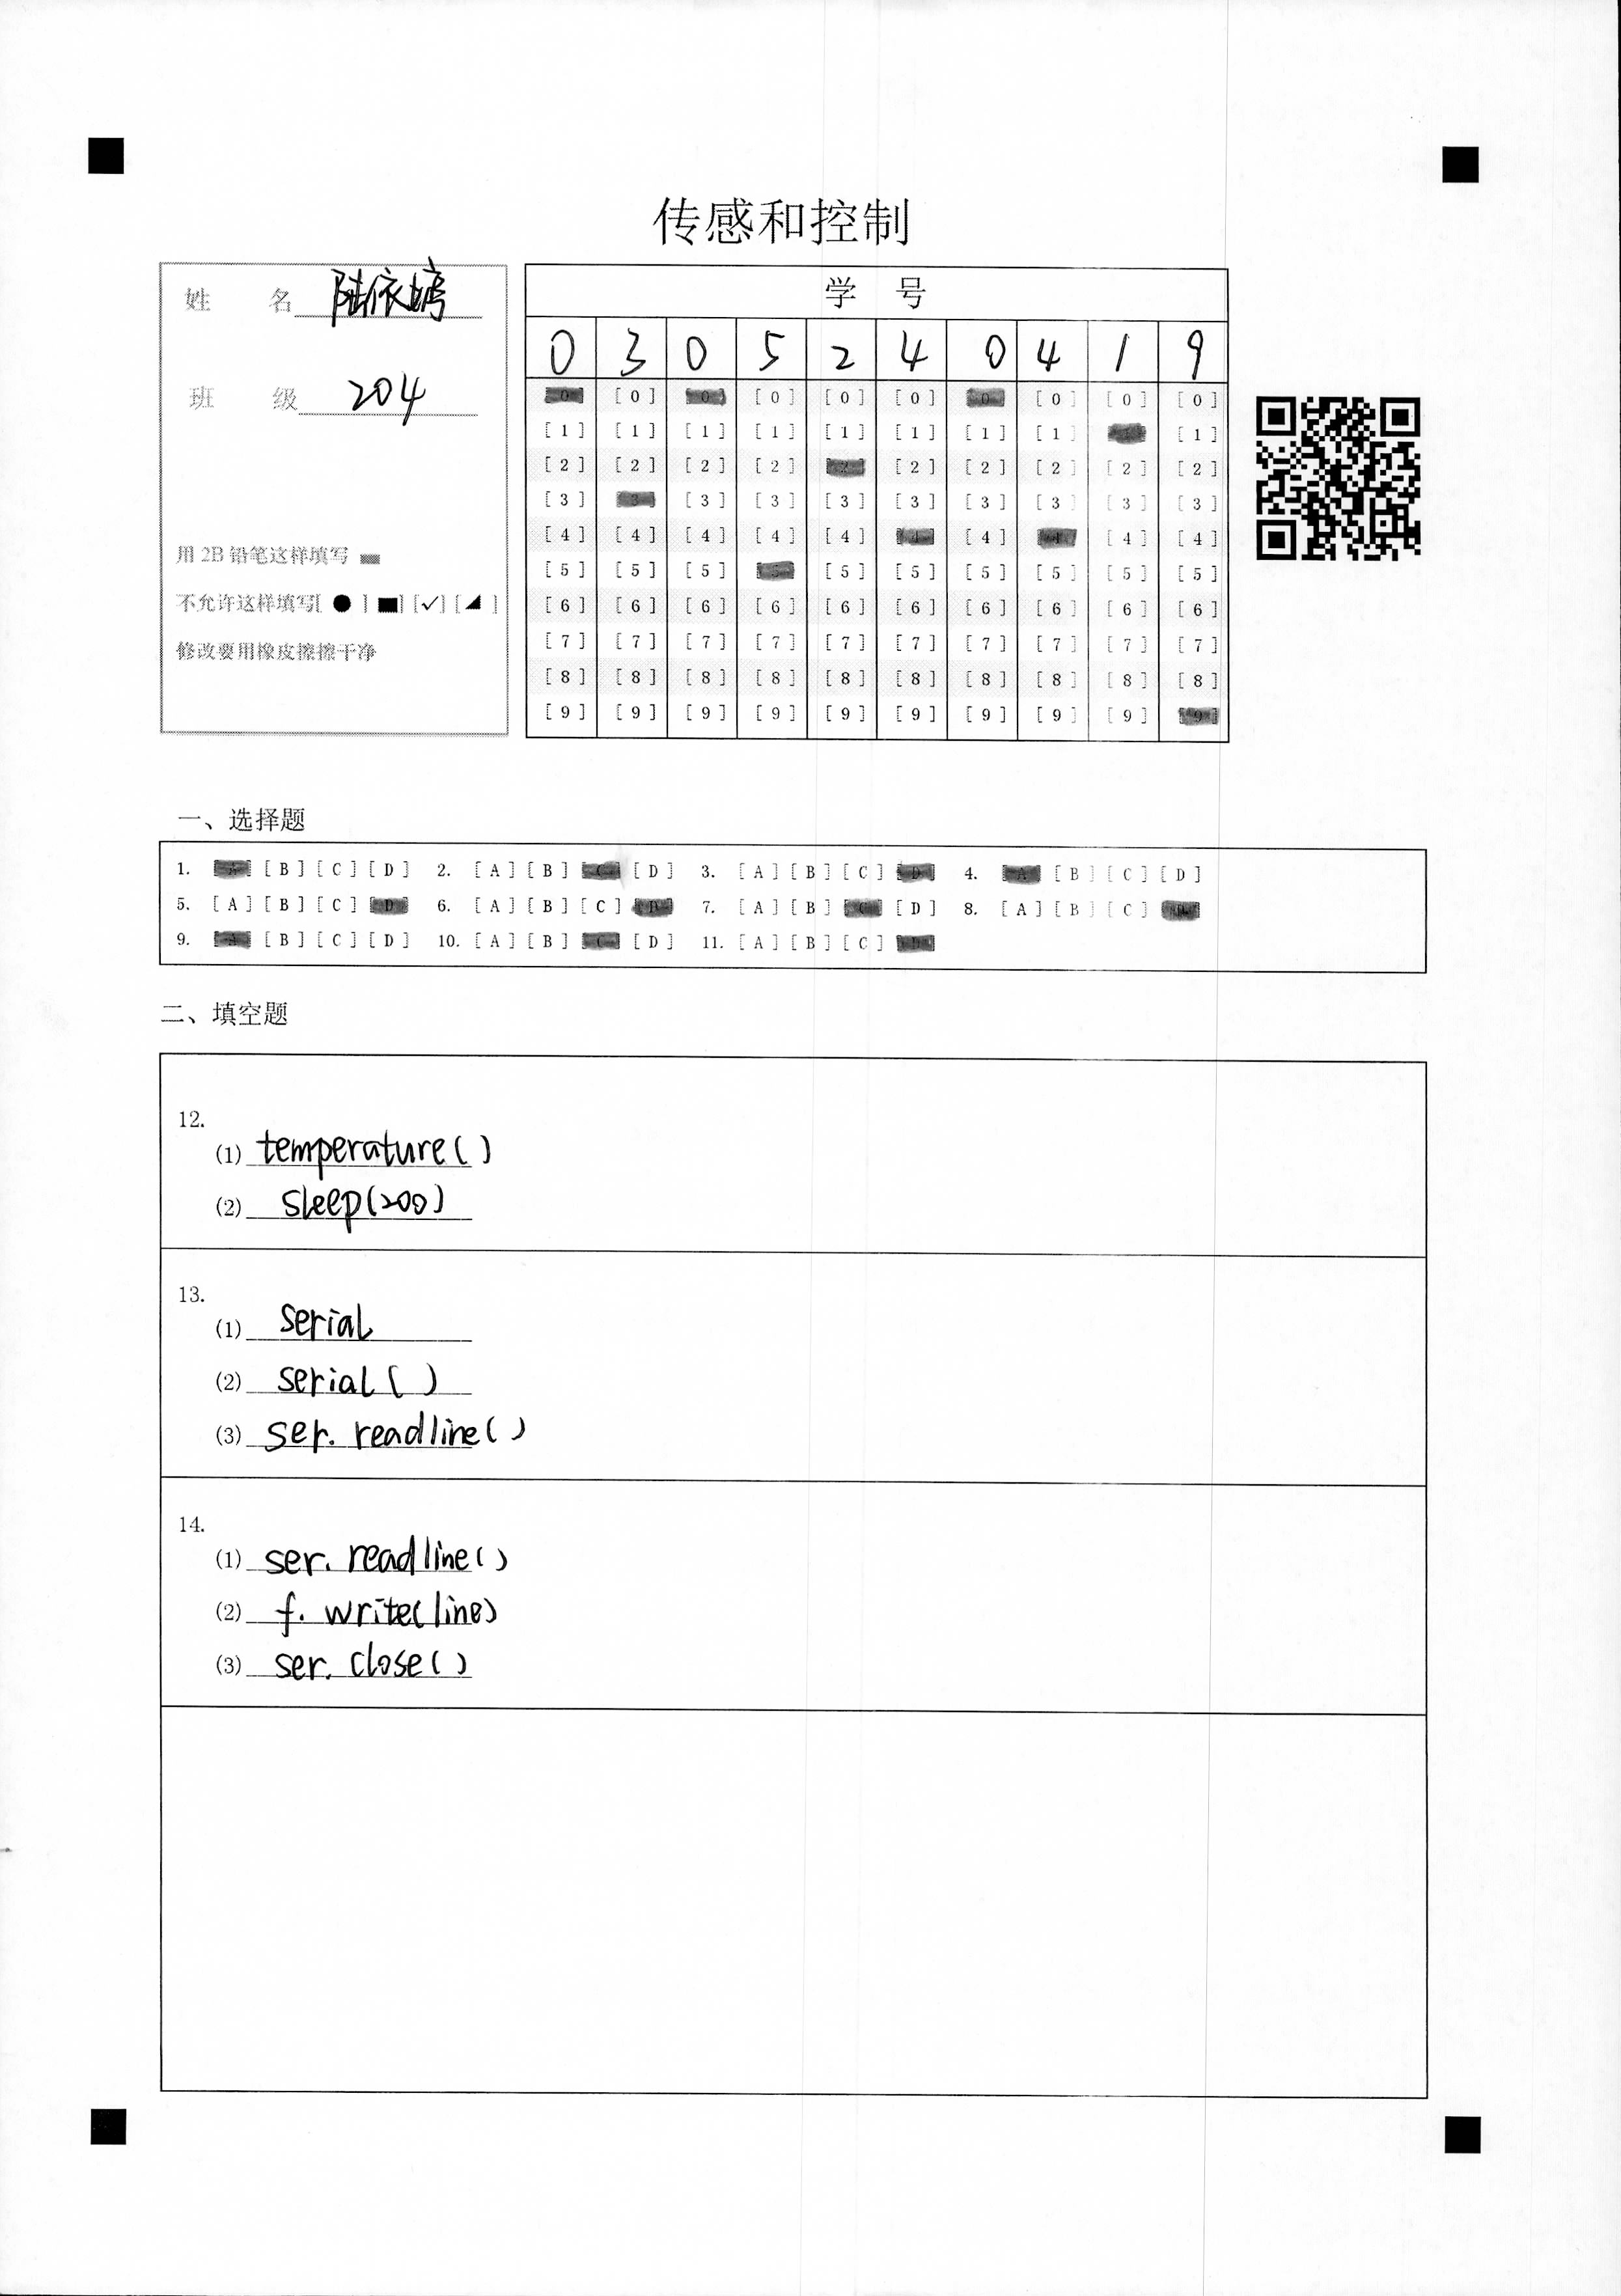 传感和控制
姓 名 陆依婷
班 级 204
用 2B 铅笔这样填写
不允许这样填写[ ● ] [■] [✓] [◢ ]
修改要用橡皮擦擦干净
学 号
0 3 0 5 2 4 0 4 1 9
[0] [0] [0] [0] [0] [0] [0] [0] [0] [0]
[1] [1] [1] [1] [1] [1] [1] [1] [1] [1]
[2] [2] [2] [2] [2] [2] [2] [2] [2] [2]
[3] [3] [3] [3] [3] [3] [3] [3] [3] [3]
[4] [4] [4] [4] [4] [4] [4] [4] [4] [4]
[5] [5] [5] [5] [5] [5] [5] [5] [5] [5]
[6] [6] [6] [6] [6] [6] [6] [6] [6] [6]
[7] [7] [7] [7] [7] [7] [7] [7] [7] [7]
[8] [8] [8] [8] [8] [8] [8] [8] [8] [8]
[9] [9] [9] [9] [9] [9] [9] [9] [9] [9]
一、选择题
1. [A] [B] [C] [D] 2. [A] [B] [C] [D] 3. [A] [B] [C] [D] 4. [A] [B] [C] [D]
5. [A] [B] [C] [D] 6. [A] [B] [C] [D] 7. [A] [B] [C] [D] 8. [A] [B] [C] [D]
9. [A] [B] [C] [D] 10. [A] [B] [C] [D] 11. [A] [B] [C] [D]
二、填空题
12.
(1) temperature()
(2) sleep(200)
13.
(1) serial
(2) serial()
(3) ser.readline()
14.
(1) ser.readline()
(2) f.write(line)
(3) ser.close()